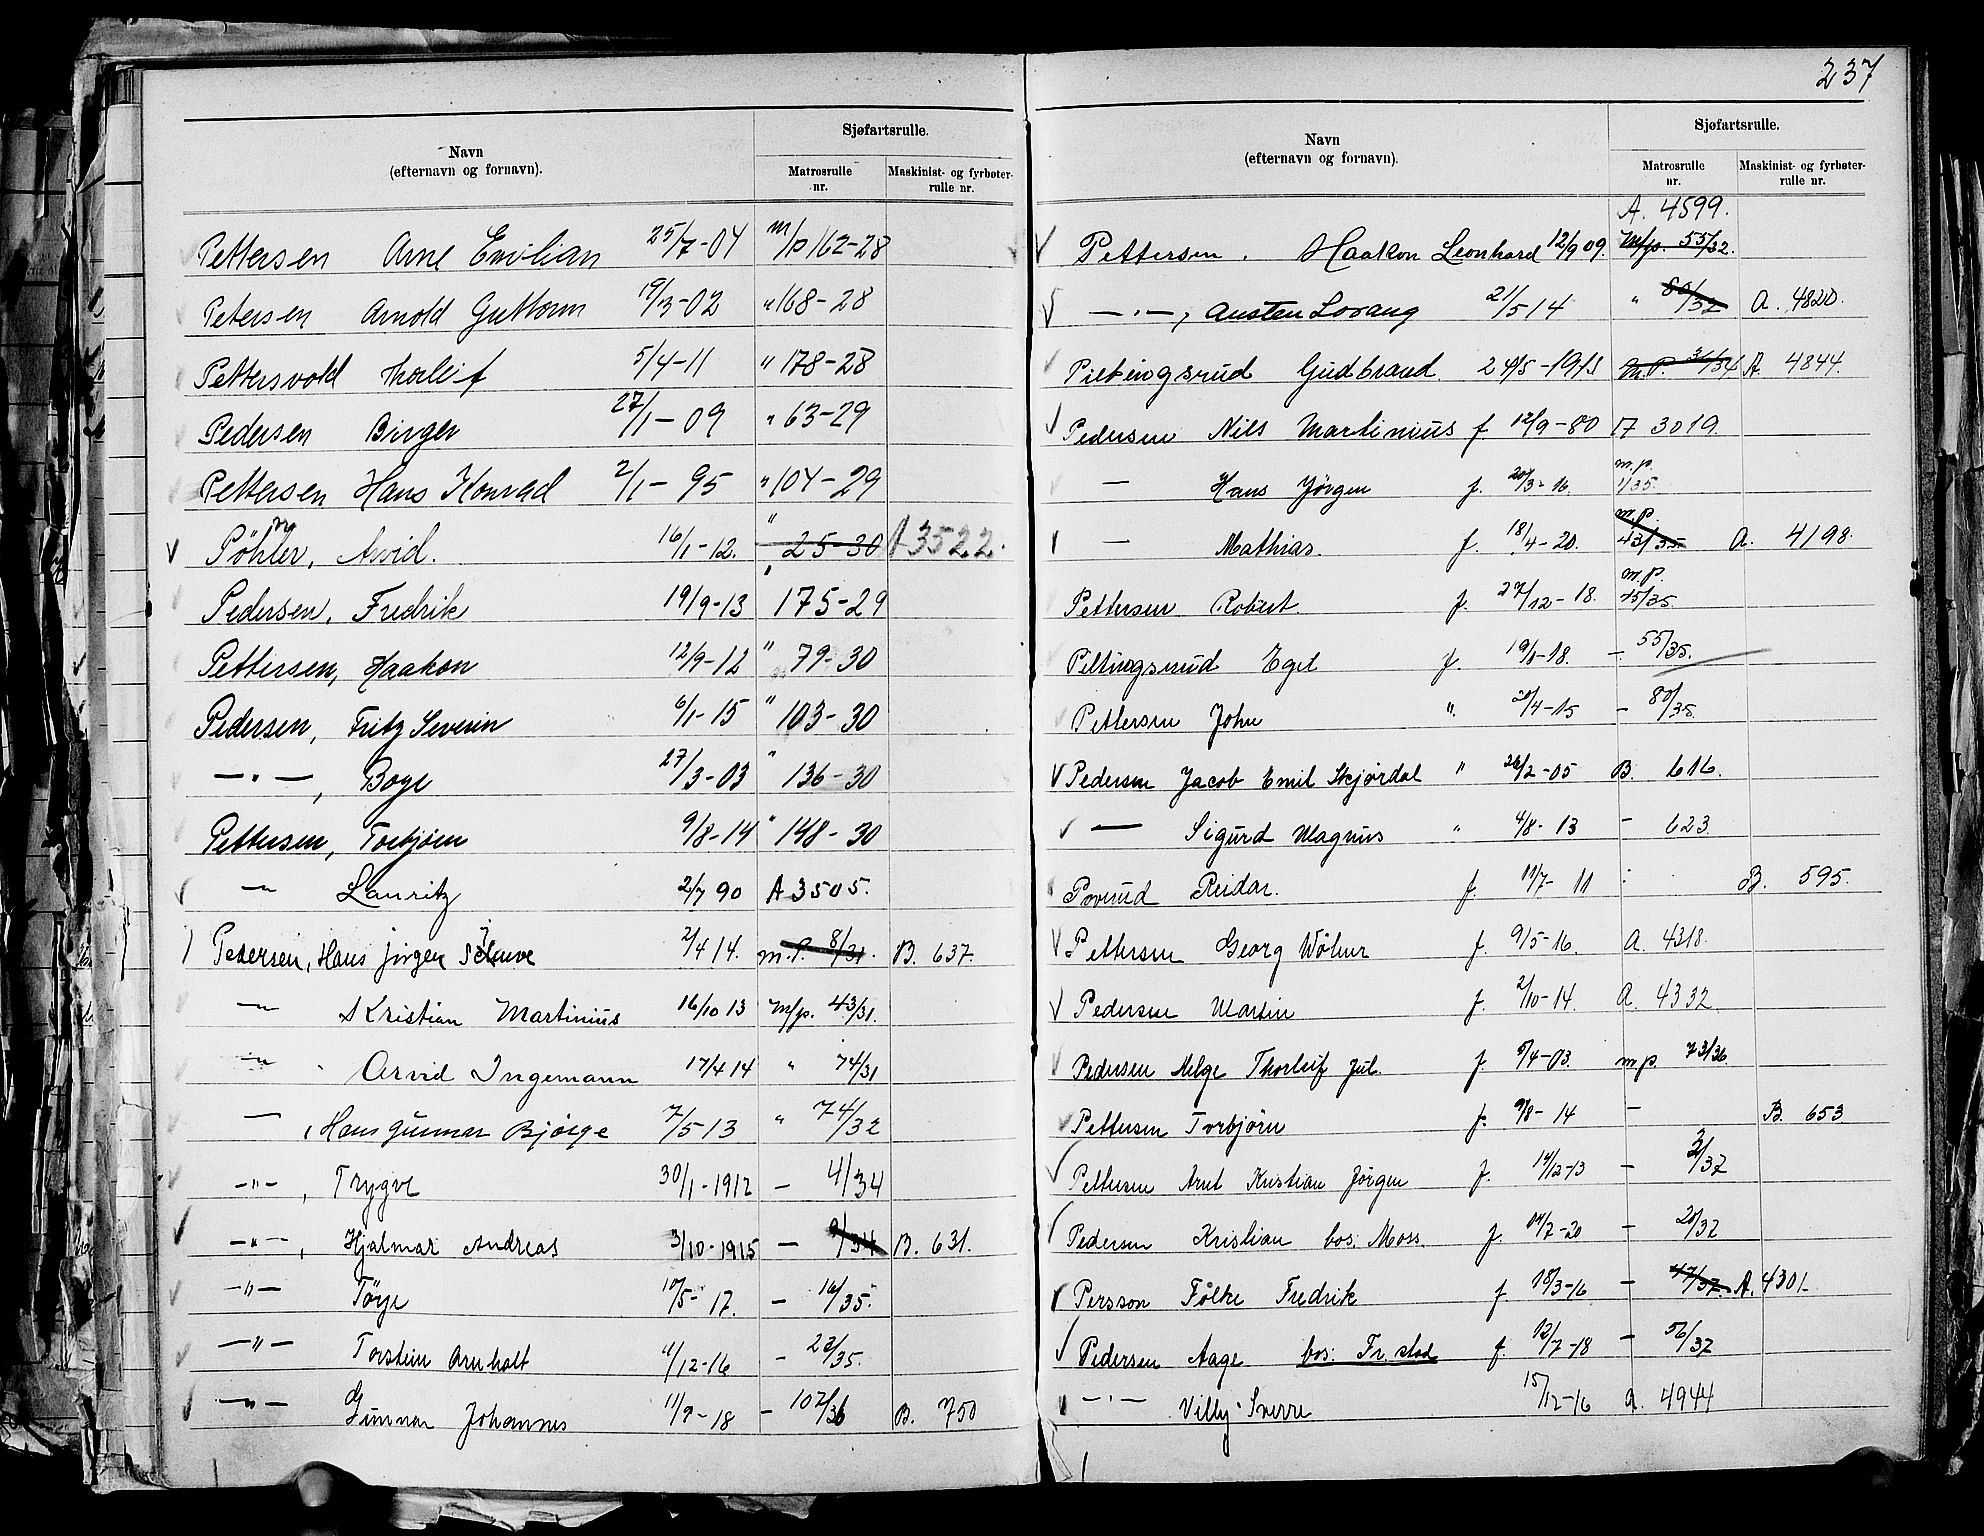 237
Navn
(efternavn og fornavn).
Sjøfartsrulle.
Matrosrulle
nr.
Maskinist- og fyrbøter-
rulle nr.
Pettersen Arne Emilian 25/7-04 m/p 162-28
Petersen Arnold Guttorm 19/3-02 " 168-28
Pettersvold Thorleif 5/4-11 " 178-28
Pedersen Birger 27/1-09 " 63-29
Pettersen Hans Konrad 2/1-95 " 104-29
Pöhler, Arvid. 16/1-12. " 25-30 A 3522.
Pedersen, Fredrik 19/9-13 " 175-29
Pettersen, Haakon 12/9-12 " 79-30
Pedersen, Fritz Severin 6/1-15 " 103-30
—"—, Boge 27/3-03 " 136-30
Pettersen, Torbjørn 9/8-14 " 148-30
—"— Lauritz 2/7 90 A 3505.
Pedersen, Hans Jörgen 2/4 14. m.P. 8/31. B. 637.
—"— Kristian Martinius 16/10 13 M/p. 43/31.
—"— Arvid Ingemann 17/4 14 " 74/31
— , Hans Gunnar Bjørge 7/5-13 " 74/32
—"—, Trygve 30/1-1912 — 4/34
—"—, Hjalmar Andreas 3/10-1915 — 9/34 B. 631.
—"— Törje 10/5-17. — 16/35.
—"— Torstein Arnholt 11/12-16 — 22/35.
—"— Gunnar Johannes 11/9-18 — 102/36 B. 750
Navn
(efternavn og fornavn).
Sjøfartsrulle.
Matrosrulle
nr.
Maskinist- og fyrbøter-
rulle nr.
A. 4599.
Pettersen. Haakon Leonhard 12/9 09. M/p. 55/32.
—"—, Austen Lorang 21/5 14 " 80/32 A. 4820.
Piltingsrud Gudbrand 24/5-1915 M.P. 31/34 A. 4844.
Pedersen Nils Martinius f 12/9-80 A 3019.
— Hans Jörgen f. 20/3-16. m.p. 1/35.
— Mathias. f. 18/4-20. m.p. 43/35. A. 4198.
Pettersen Robert f. 27/12-18. m.p. 45/35.
Piltingsrud Egil f. 19/1-18. — 55/35.
Pettersen John ". 20/4-15 — 80/35.
Pedersen Jacob Emil Skjørdal " 26/2-05 B. 616.
— Sigurd Magnus " 4/8-13 — 623.
Poverud Reidar. f. 11/7-11 B. 595.
Pettersen Georg f. 9/5-16. A. 4318.
Pedersen Martin f. 2/10-14. A. 4332
Pedersen Helge Thorleif Jul. f. 5/4-03. m.p. 73/36.
Pettersen Torbjørn f. 9/8-14 — B. 653
Pettersen Arnt Kristian Jörgen f. 14/12-13 — 2/37
Pedersen Kristian bos: Moss. f. 14/7-20 — 20/37
Persson Fölke Fredrik f. 18/3-16 — 47/37. A. 4301.
Pedersen Aage bos: Fr.stad f. 12/7-18 — 56/37
—"— Villy Sverre 15/12-16 A. 4944